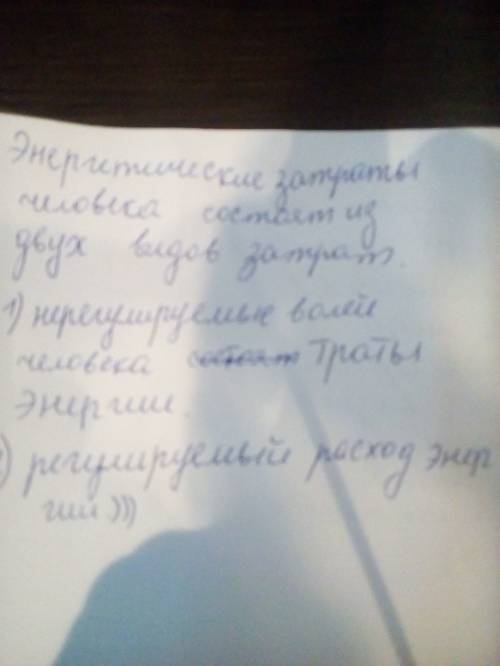 Энергитические затраты
человека состоят из
двух видов затрат.
1) нерегулируемые волей
человека состоят траты
энергии.
) регулируемый расход энер
гии)))